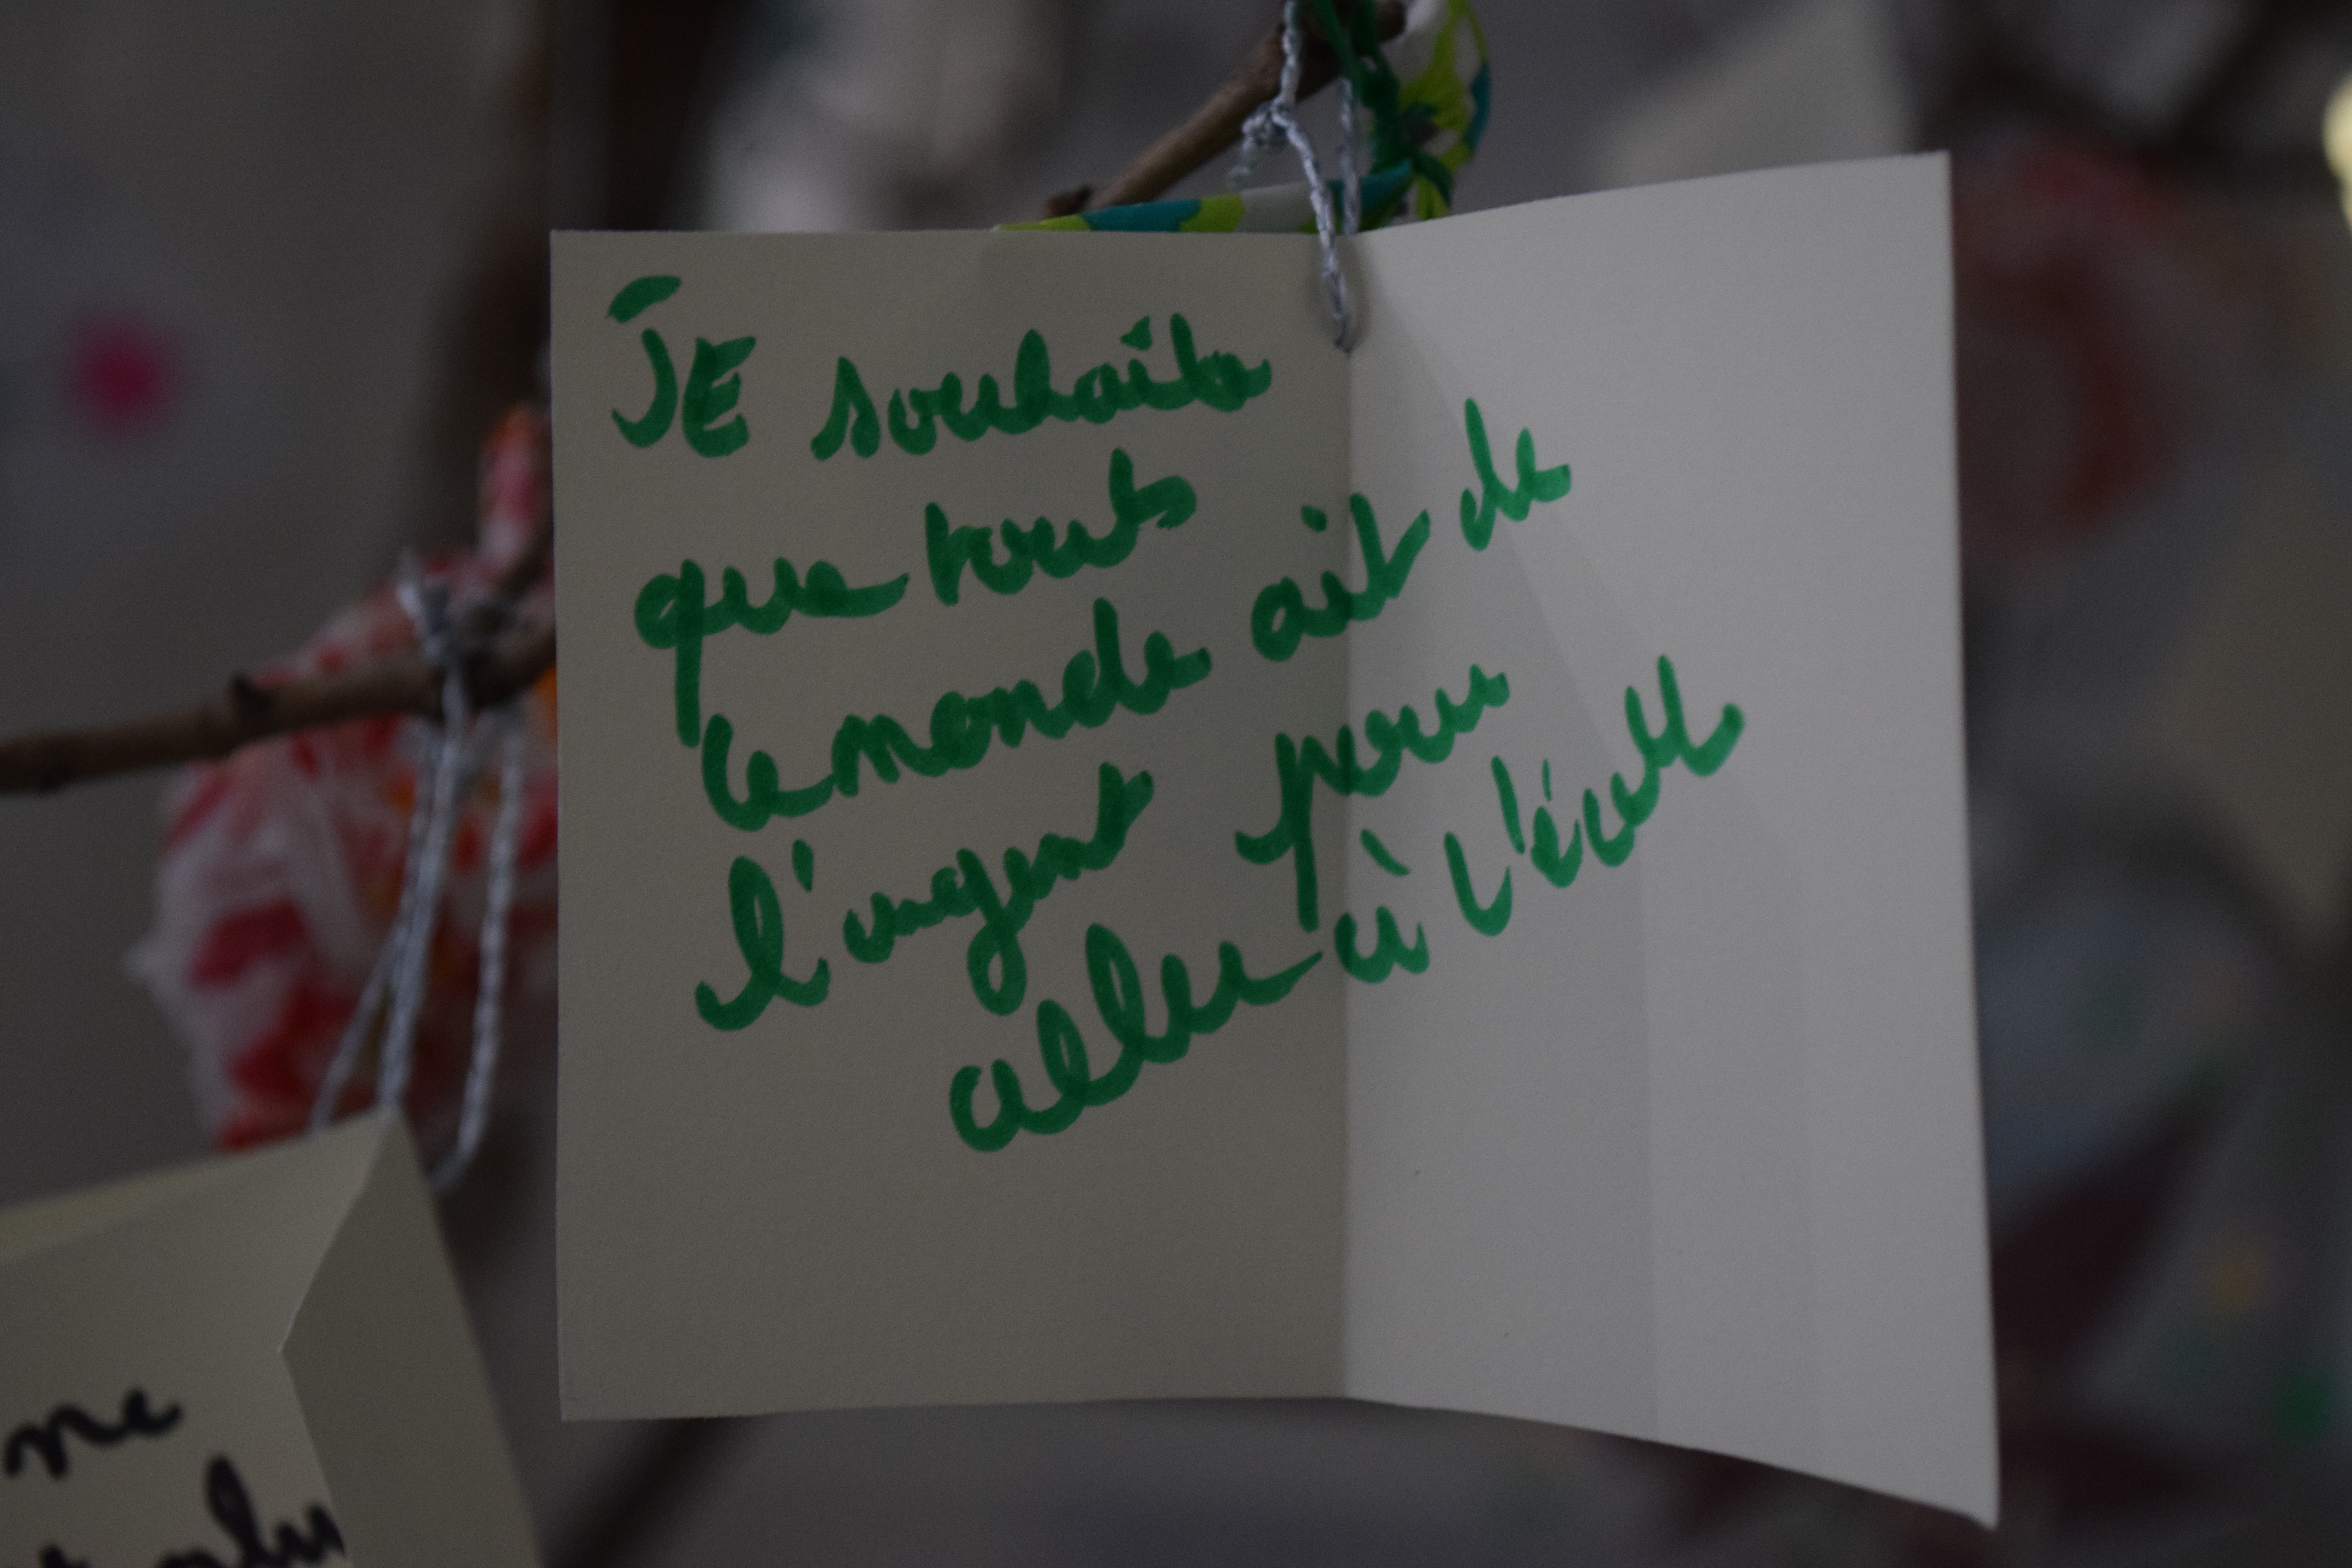 JE souhaite
que tout
le monde ait de
l'argent pour
aller à l'école
ne
plus